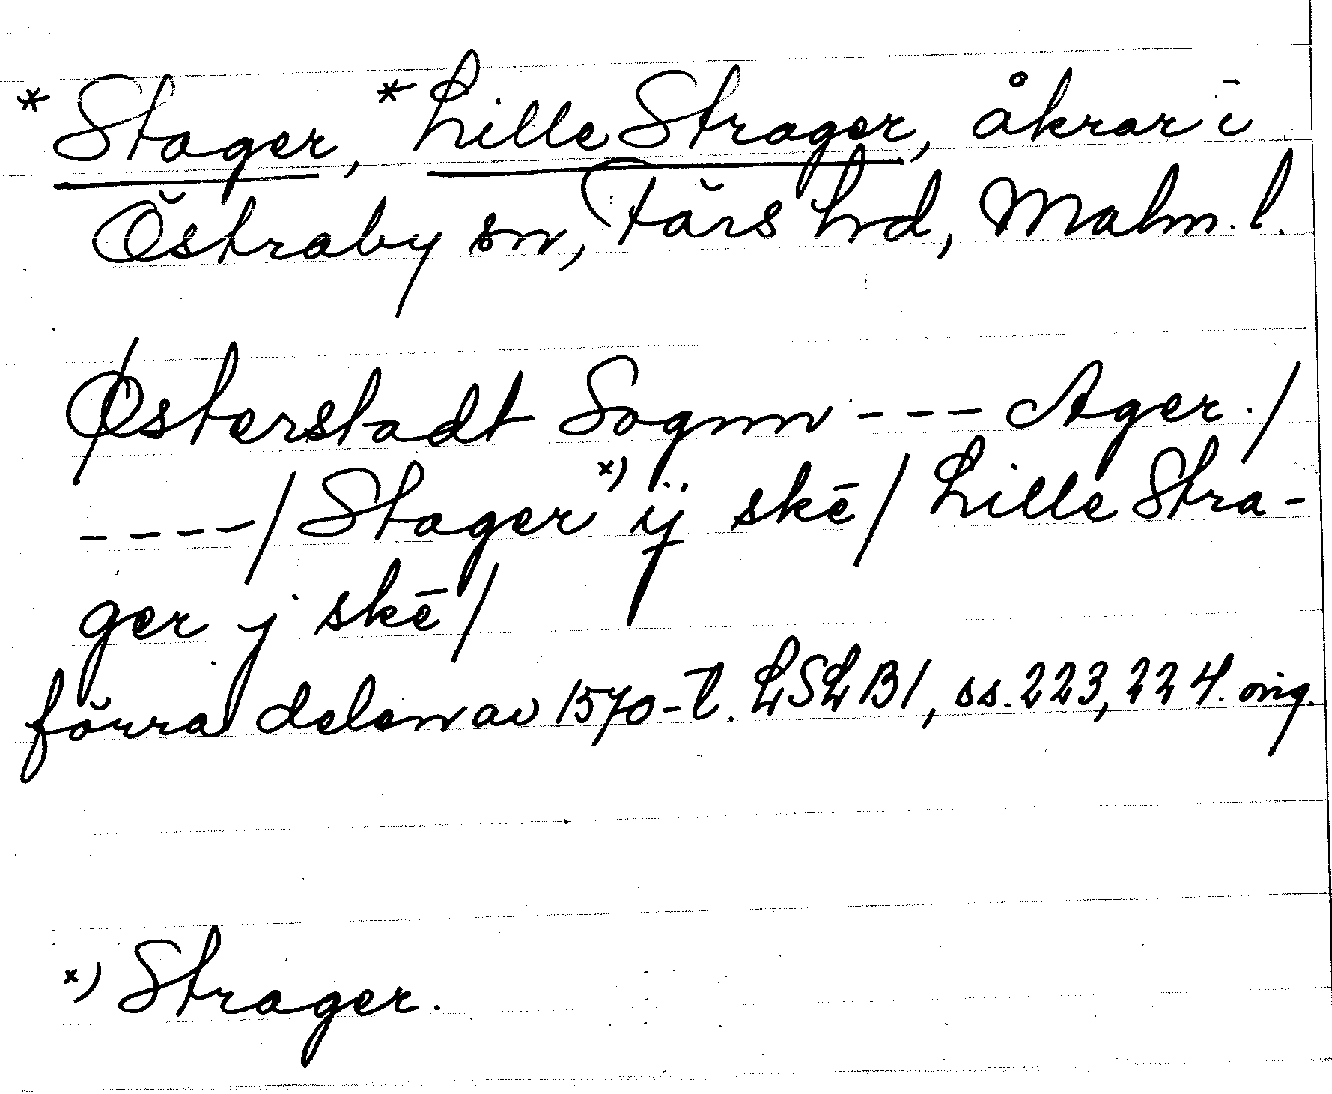 *Stager, *Lille Strager, åkrar i
Östraby sn, Färs hd, Malm. l.
Østerstadt Sognn --- Ager./
----/ Stager x) ij skē/ Lille Stra-
ger j skē/
förra delen av 1570-t. LSLB1, ss. 223, 224. orig.
x) Strager.